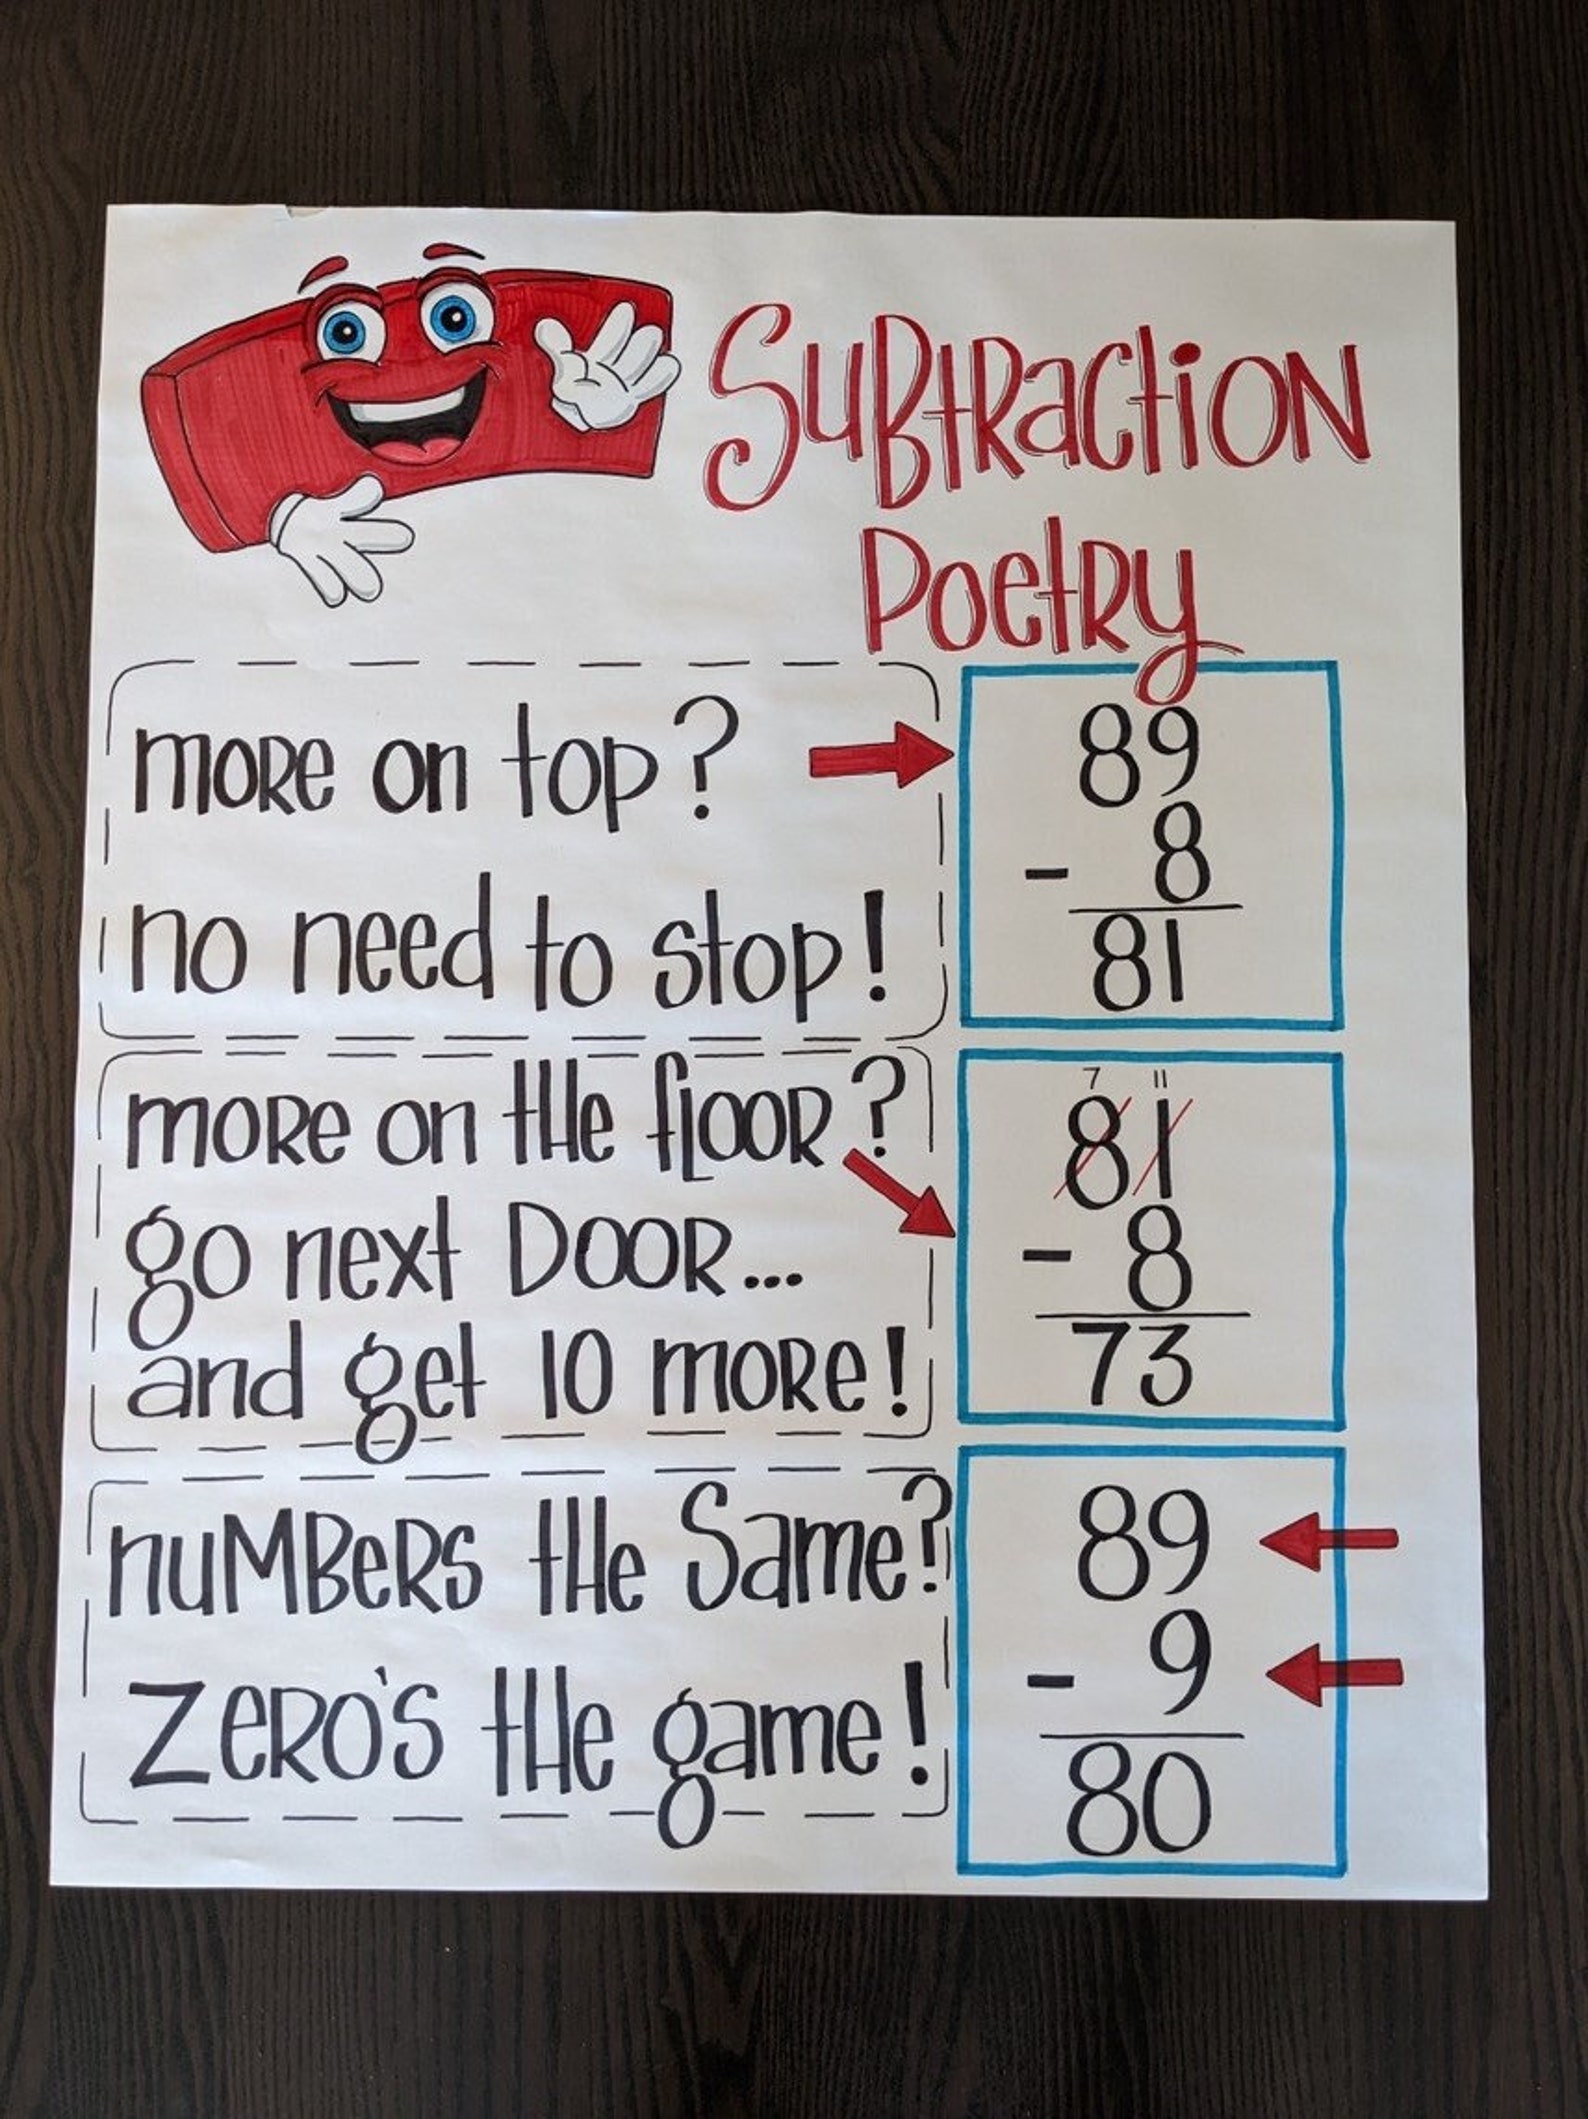 SuBtRaction
PoetRy
moRe on top?
no need to stop!
89
- 8
81
moRe on tHe fLOOR?
go next DOOR...
and get 10 moRe!
7 11
81
- 8
73
nuMBeRS tHe Same?
ZeRO'S tHe game!
89
- 9
80